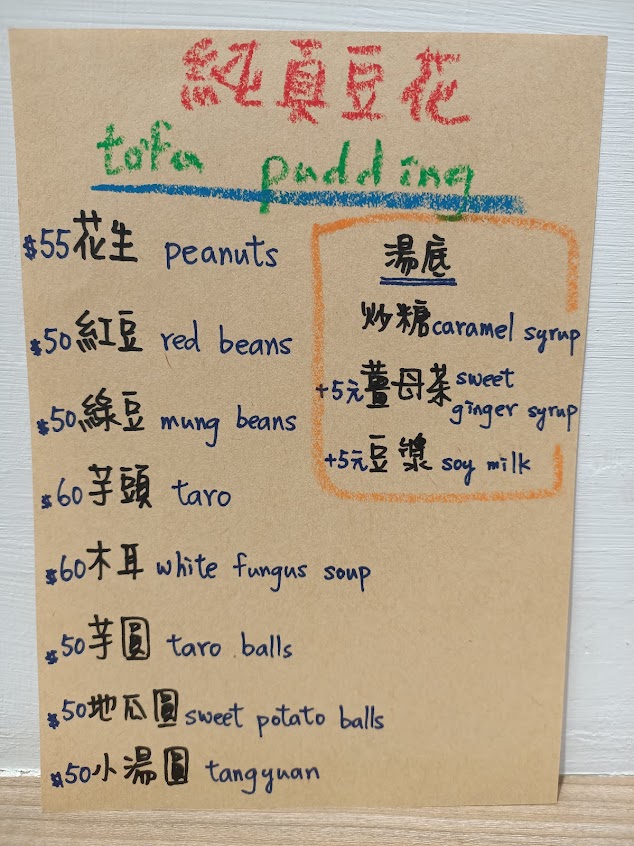 純真豆花
tofu pudding
$55花生 peanuts
$50紅豆 red beans
$50綠豆 mung beans
$60芋頭 taro
$60木耳 white fungus soup
$50芋圓 taro balls
$50地瓜圓 sweet potato balls
$50小湯圓 tangyuan
湯底
炒糖 caramel syrup
+5元薑母茶 sweet ginger syrup
+5元豆漿 soy milk